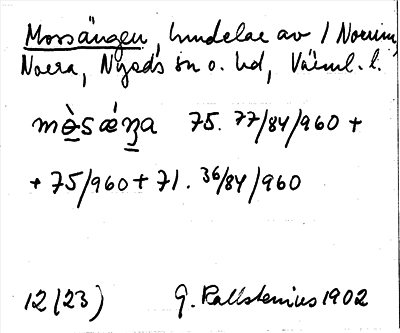 Morsängen, hmdelar av 1 Norum,
Noera, Nyeds sn o. hd, Värml. l.
mȯ̲̀sǽŋa 75. 77/84/960 +
+ 75/960 + 71. 36/84/960
12 (23) G. Kallstenius 1902